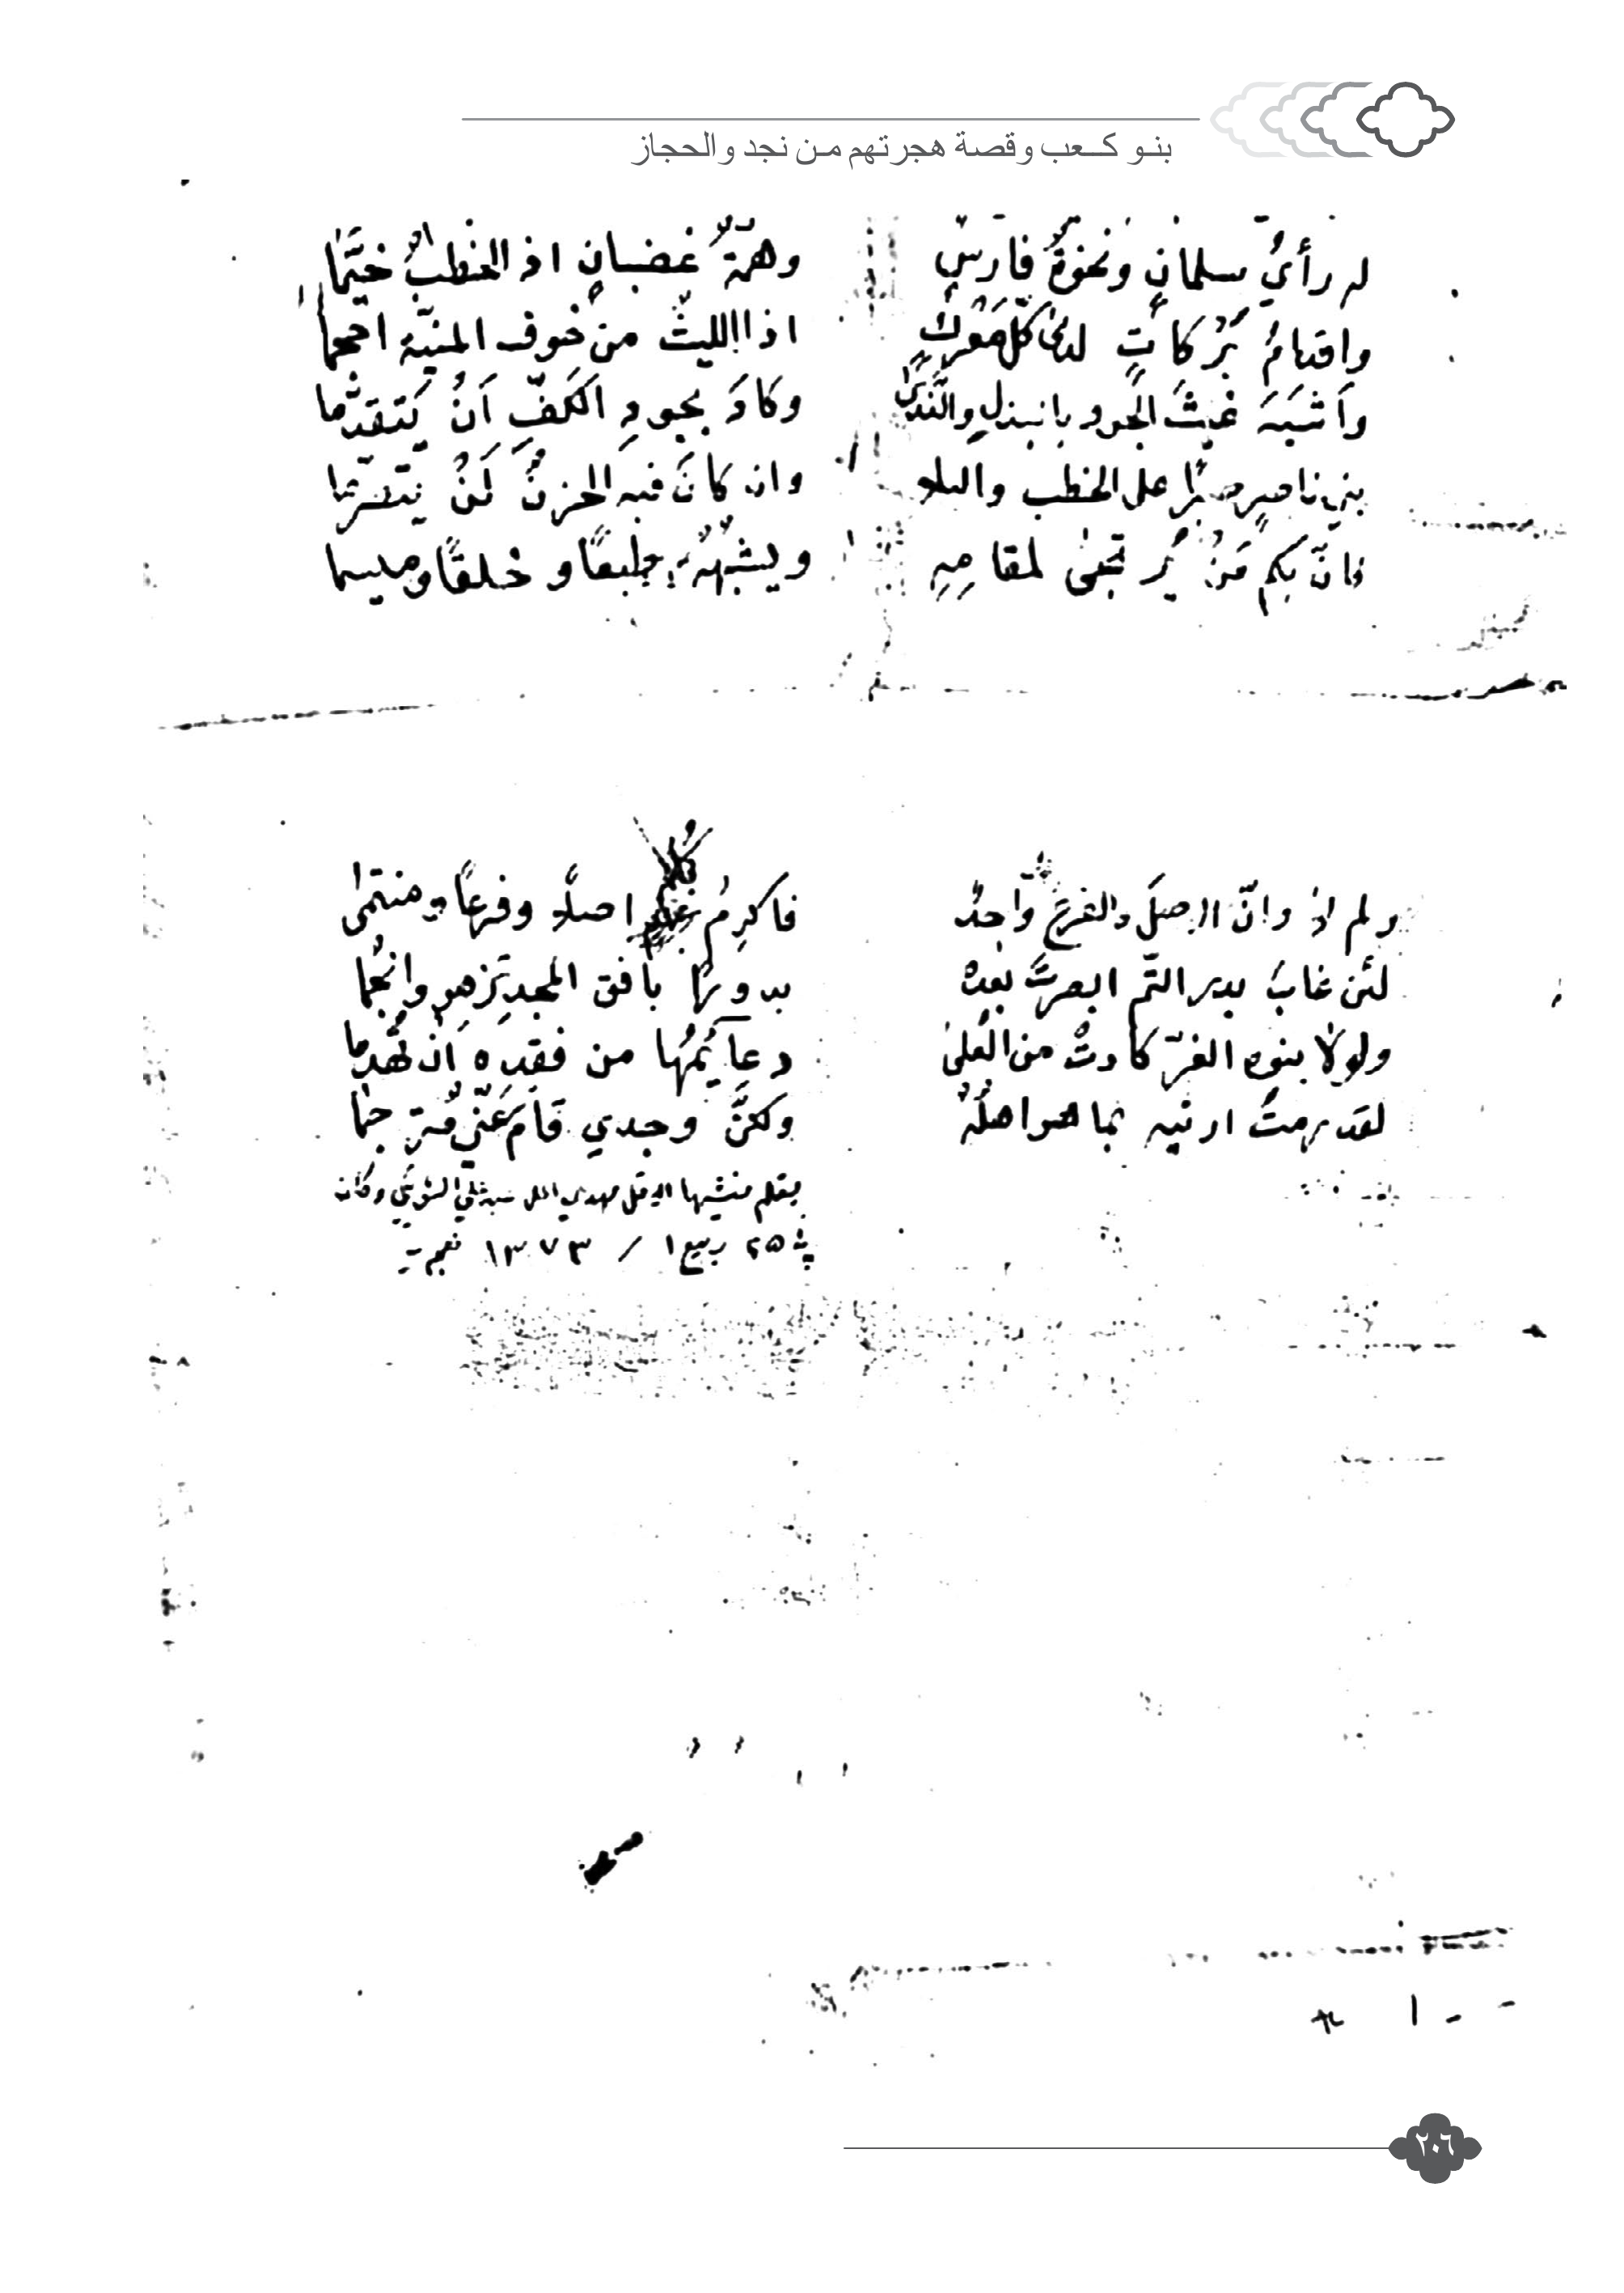 بنو كعب وقصة هجرتهم من نجد والحجاز
له رأيُ سلمانٍ ونخوةُ فارسٍ وهمّةُ غضبانٍ اذ الخطبُ خيَّما
واقدامُ بَرْكاتٍ لدىٰ كلّ مَعْركٍ اذا الليثُ من خوف المنيّه احجما
وَاَشبَهَ غيثَ الجود بالبذلِ والنَّدىٰ وكادَ بجودِ الكَفِّ اَنْ يَتقدّما
بني ناصرٍ صبرًا على الخطب والبلا وان كانَ فيه الحزنُ لَنْ يتصرّما
فانّ بكم مَنْ يُرتجىٰ لمقامِهِ ويشبهُهُ طبعًا و خلقًا وميسما
ولم اذ وانّ الاصلَ والفرعَ واحدٌ فاكرِمْ اصلًا وفرعًا ومنتمىٰ
لئن غابَ بدر التّم ابصرتَ بعدهُ بدورًا بافق المجدِ تزهو وانجُما
ولولا بنوه الغرّ كادتْ من العُلىٰ دعايمُها من فقده اَن تهُدما
لقد رمتُ ارثيه بما هو اهلُهُ ولكنَّ وجدي قامَ عَنّي مُترجما
بقلم منشيها الاقل مهدي السيد علي الشوكي وكان
في ٢٥ ربيع ١ / ١٣٧٣ هجرية
٢٠٦